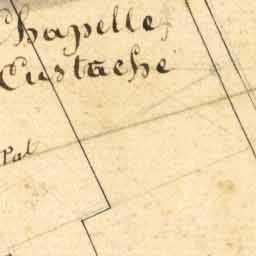 Chapelle
Eustache
Pal